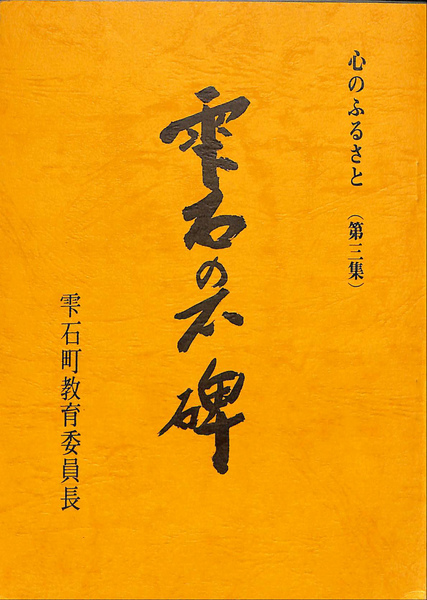 心のふるさと （第三集）
雫石の石碑
雫石町教育委員長